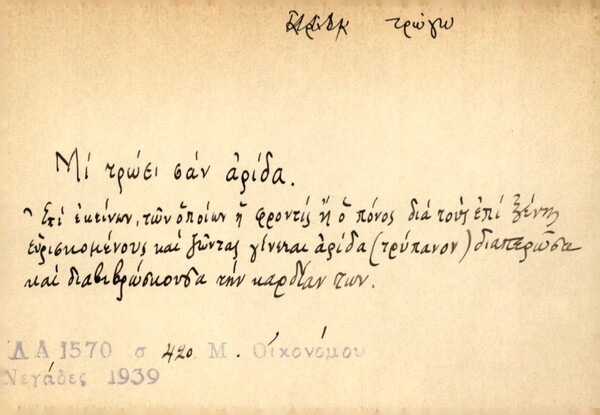 τρώγω
Μί τρώει σάν ἀρίδα.
Ἐπί ἐκείνων, τῶν ὁποίων ἡ φροντίς ἤ ὁ πόνος διά τούς ἐπί ξένης
εὑρισκομένους καί ζῶντας γίνεται ἀρίδα (τρύπανον) διαπερῶσα
καί διαβιβρώσκουσα τήν καρδίαν των.
ΛΑ 1570 σ 420 Μ. Οἰκονόμου
Νεγάδες 1939